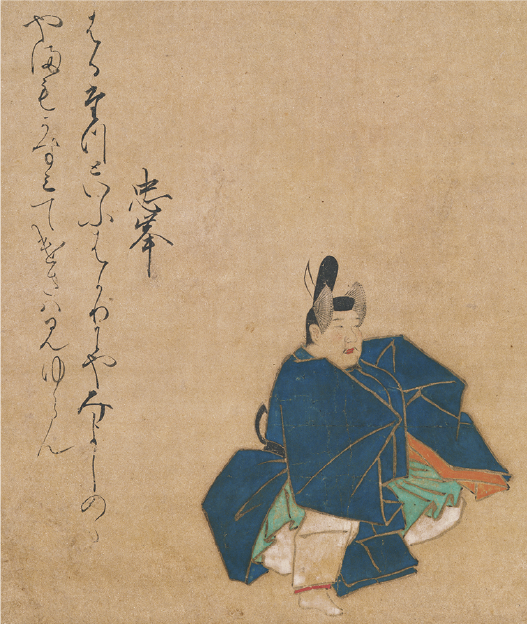 忠峯
はるたつといふはかりにやみよしのゝ
やまもかすみてけさはみゆらん